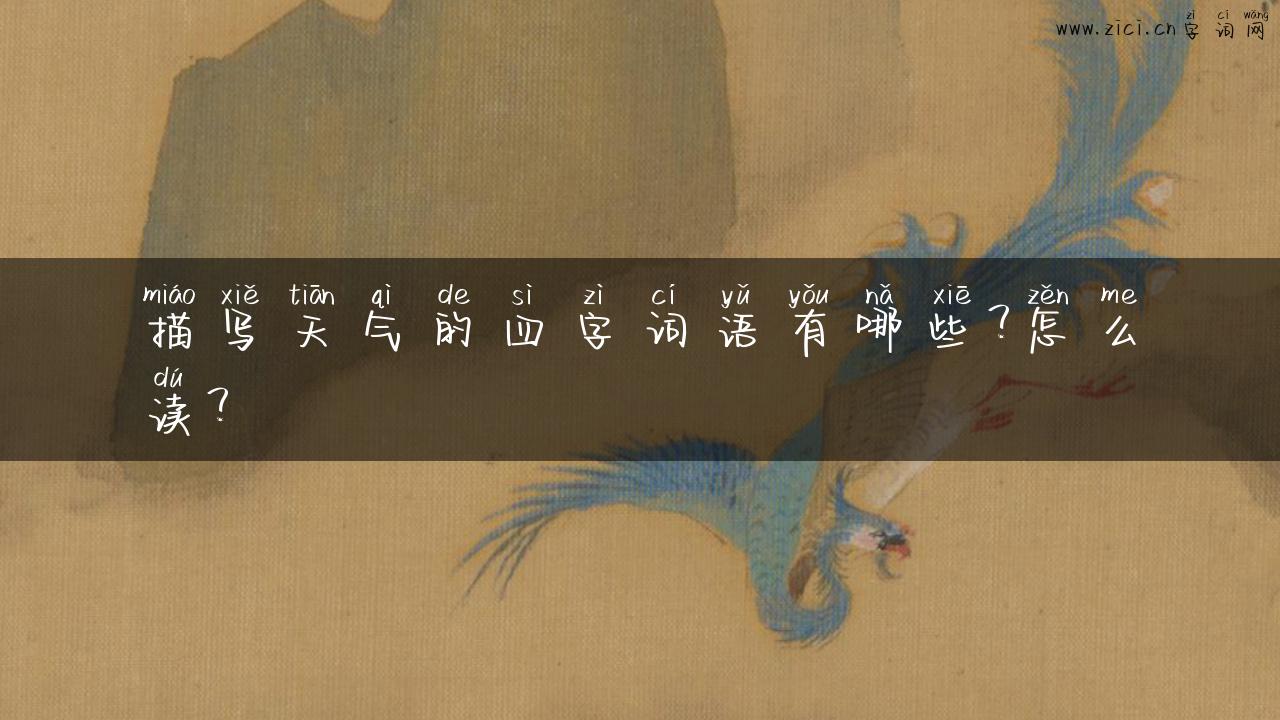 zì cí wǎng
www.zici.cn字词网
miáo xiě tiān qì de sì zì cí yǔ yǒu nǎ xiē zěn me
描写天气的四字词语有哪些?怎么
dú
读?